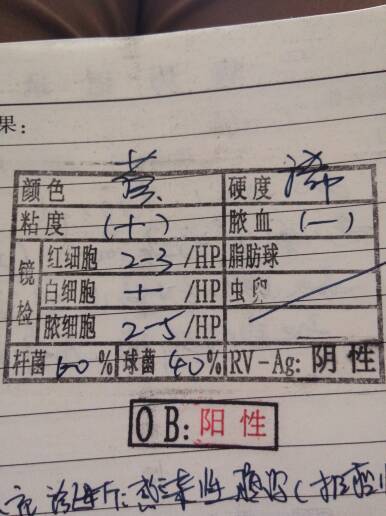 果:
颜色 黄 硬度 稀
粘度 (+) 脓血 (—)
镜检
红细胞 2-3 /HP 脂肪球
白细胞 + /HP 虫卵
脓细胞 2-5 /HP
杆菌 60% 球菌 40% RV-Ag: 阴性
OB: 阳性